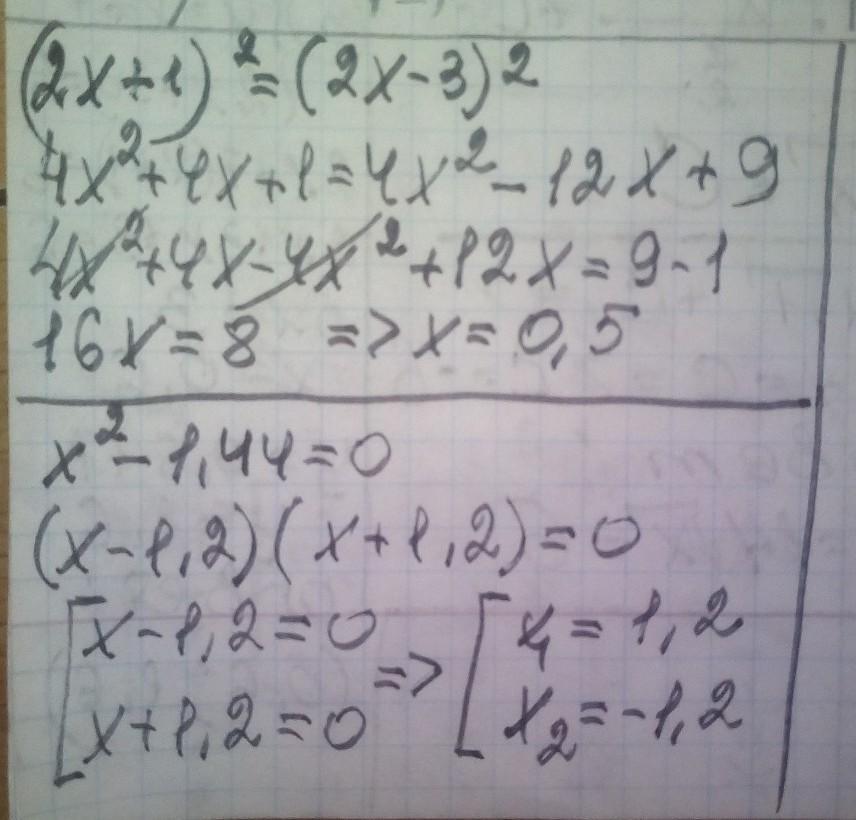 (2x+1)²=(2x-3)²
4x²+4x+1=4x²-12x+9
4x²+4x-4x²+12x=9-1
16x=8 => x=0,5
x²-1,44=0
(x-1,2)(x+1,2)=0
[x-1,2=0 => [x₁=1,2
x+1,2=0 x₂=-1,2